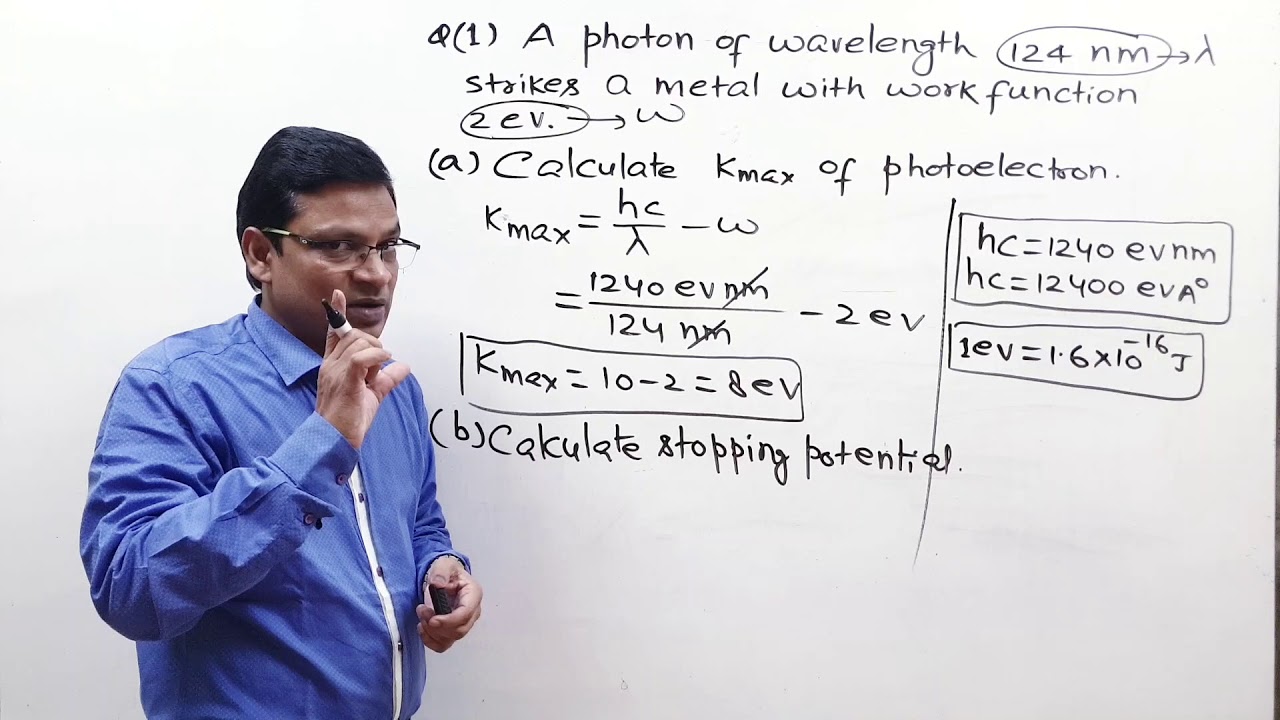 Q(1) A photon of wavelength 124 nm → λ
strikes a metal with work function
2 ev. → W
(a) Calculate Kmax of photoelectron.
Kmax = hc/λ - ω
= 1240 ev nm/124 nm - 2 ev
Kmax = 10 - 2 = 8 ev
(b) Calculate stopping potential.
hc = 1240 ev nm
hc = 12400 ev A°
1ev = 1.6 × 10^-16 J